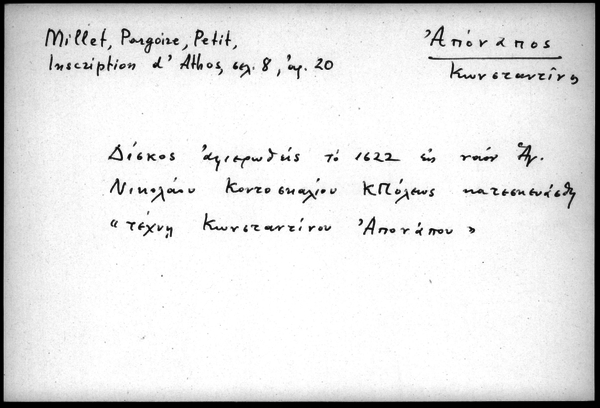 Millet, Pargoire, Petit,
Inscription d'Athos, σελ. 8, ἀρ. 20
Ἀπόναπος
Κωνσταντῖνος
Δίσκος ἀφιερωθείς τό 1622 εἰς ναόν Ἁγ.
Νικολάου Κοντοσκαλίου ΚΠόλεως κατεσκευάσθη
«τέχνη Κωνσταντίνου Ἀπονάπου»